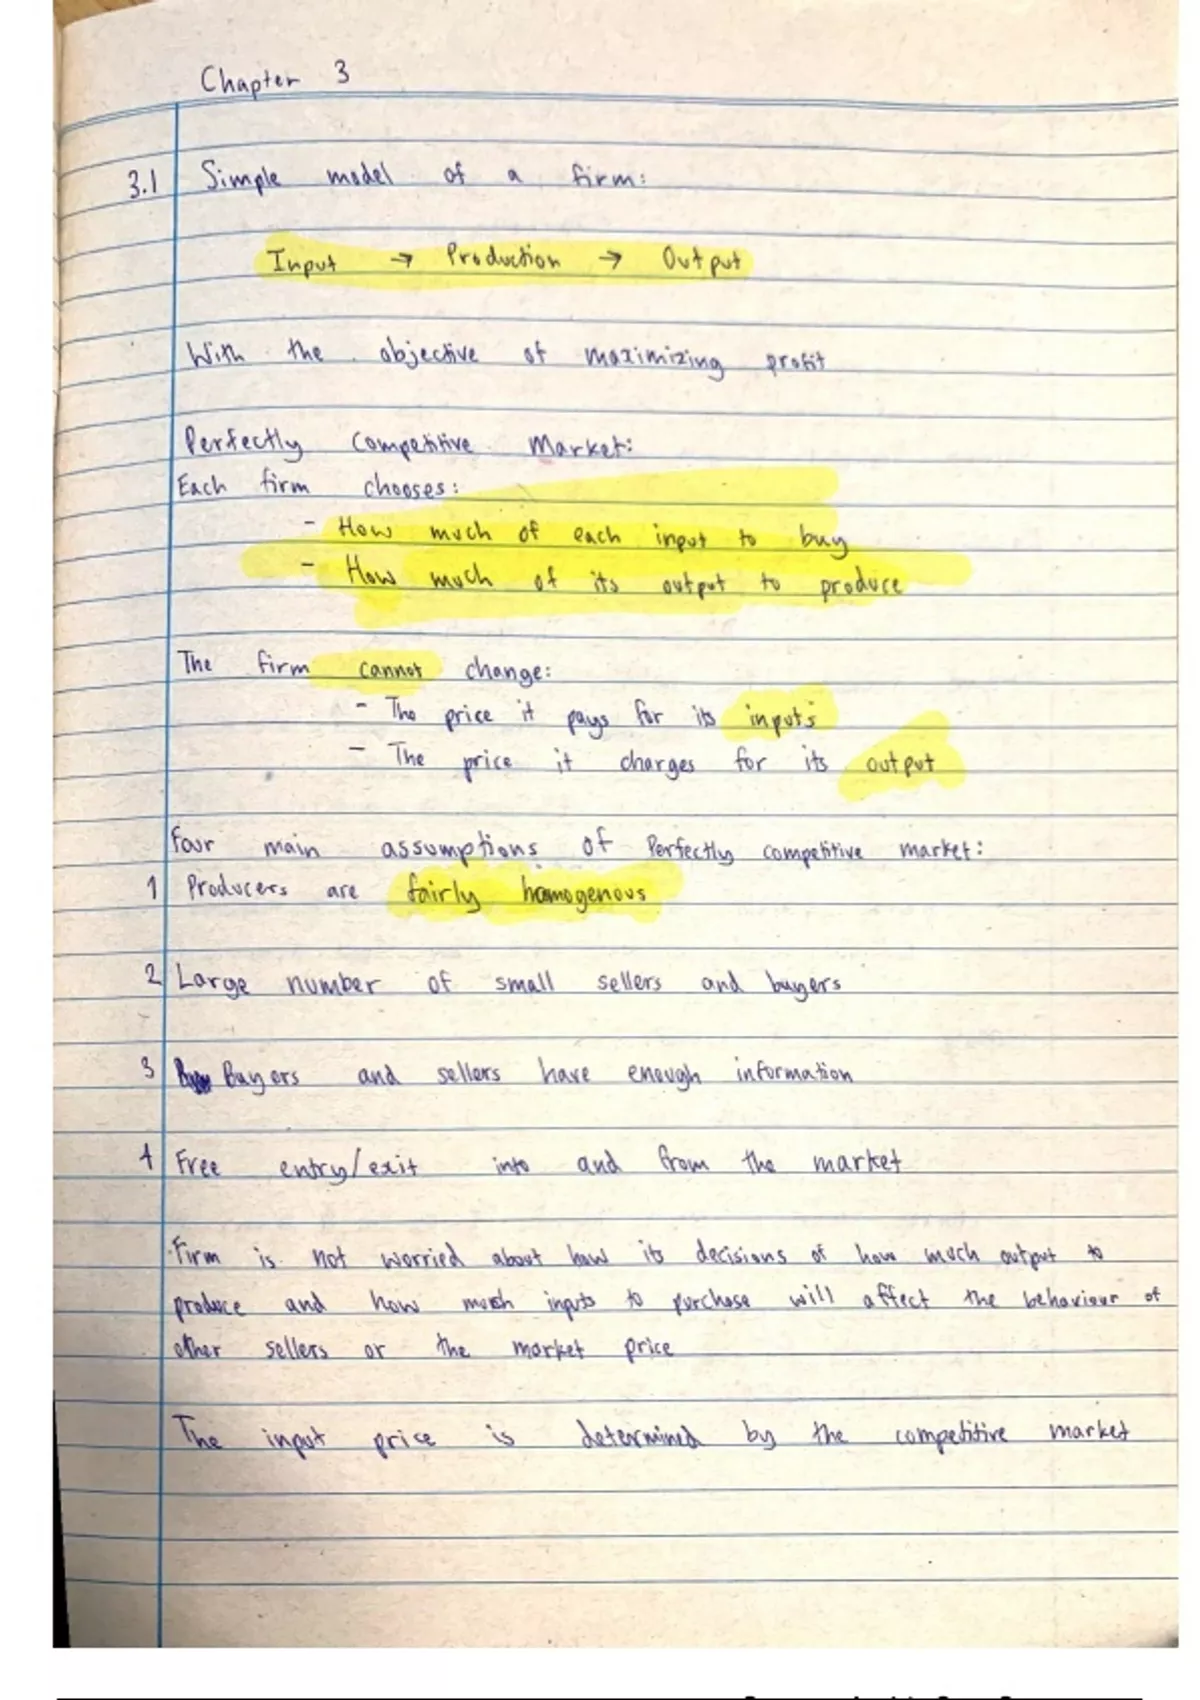 Chapter 3
3.1 Simple model of a firm:
Input → Production → Output
With the objective of maximizing profit
Perfectly Competitive Market:
Each firm chooses:
- How much of each input to buy
- How much of its output to produce
The firm cannot change:
- The price it pays for its inputs
- The price it charges for its output
Four main assumptions of Perfectly competitive market:
1 Producers are fairly homogenous
2 Large number of small sellers and buyers
3 Buyers and sellers have enough information
4 Free entry/exit into and from the market
Firm is not worried about how its decisions of how much output to
produce and how much inputs to purchase will affect the behaviour of
other sellers or the market price
The input price is determined by the competitive market